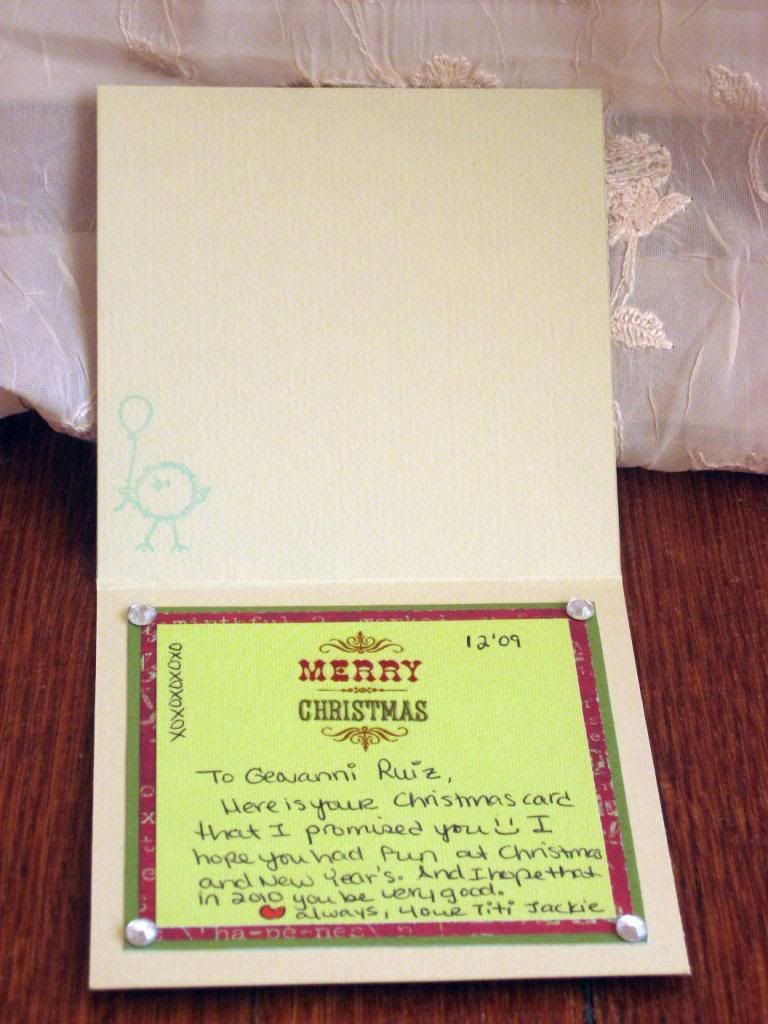 12'09
XOXOXOXOXO
MERRY
CHRISTMAS
To Geovanni Ruiz,
Here is your Christmas card
that I promised you I
hope you had fun at Christmas
and New Year's. And I hope that
in 2010 you be very good.
always, your Titi Jackie
ha-pe-nes\ n